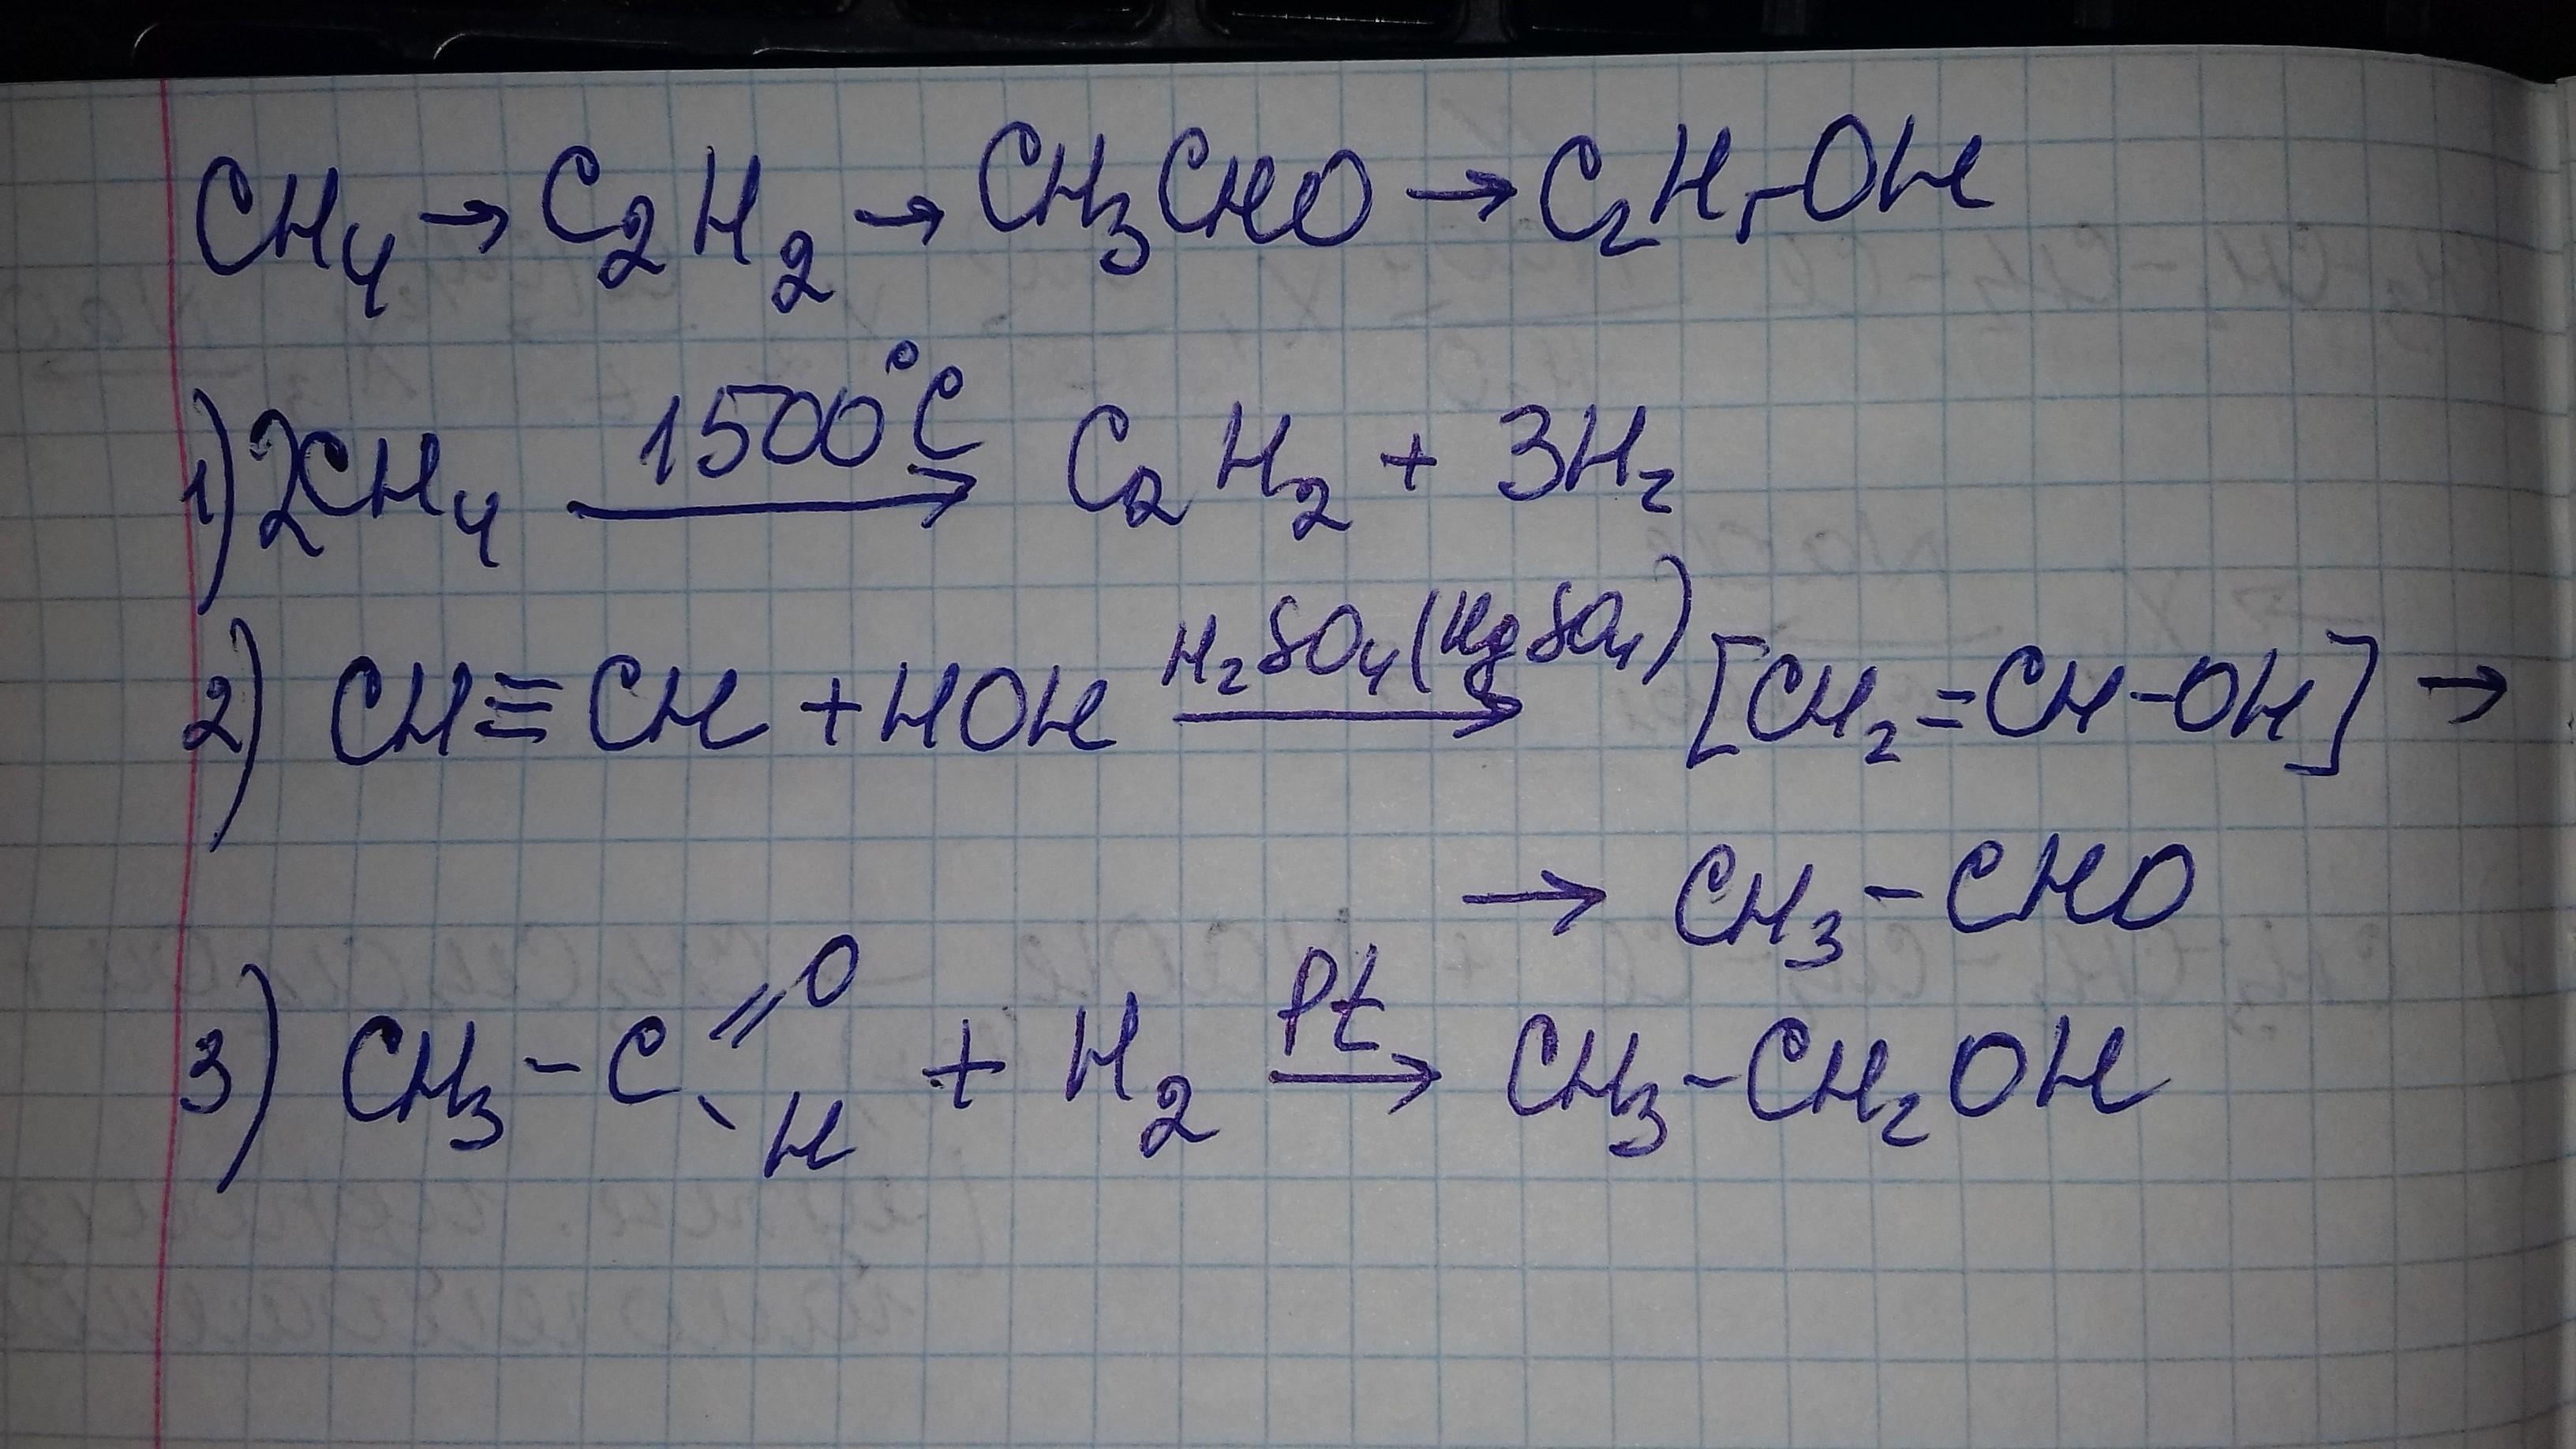 CH₄ → C₂H₂ → CH₃CHO → C₂H₅OH
1) 2CH₄ 1500°C → C₂H₂ + 3H₂
2) CH≡CH + HOH H₂SO₄(HgSO₄) → [CH₂=CH-OH] →
→ CH₃-CHO
3) CH₃-C=O-H + H₂ Pt → CH₃-CH₂OH